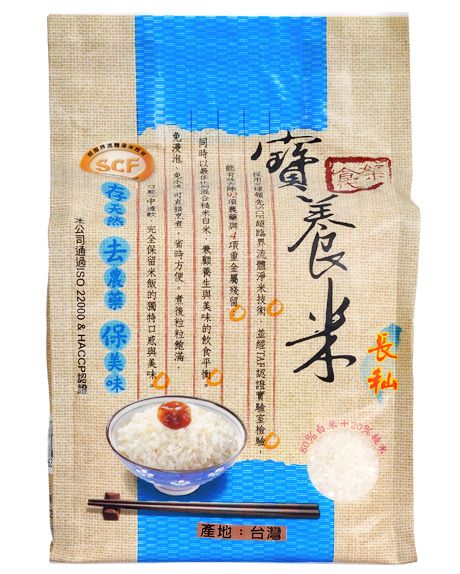 寶養米
長秈
80%白米+20%糙米
採用全球領先SCF超臨界流體淨米技術,並經TAF認證實驗室檢驗,
能有效去除92項農藥與4項重金屬殘留。
同時以最佳比例混合糙米白米,兼顧養生與美味的飲食平衡。
免浸泡、免水洗可直接烹煮,省時方便。煮後粒粒飽滿,
完全保留米飯的獨特口感與美味。
超臨界流體淨米技術
SCF
存天然
去農藥
保美味
本公司通過ISO 22000 & HACCP認證
產地:台灣